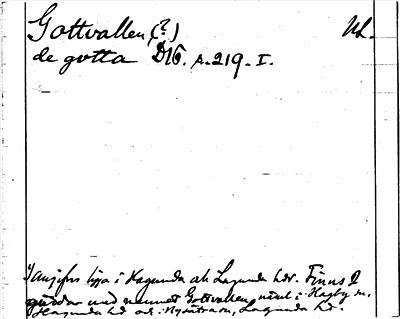 Gottvallen (?) UL.
de gotta DS. s. 219. I.
I angifvs ligga i Hagunda ell. Lagunda hdr. Finns 2
gårdar med namnet Gottvallen, näml. i Hagby sn,
Hagunda hd och i Nysätra sn, Lagunda hd.